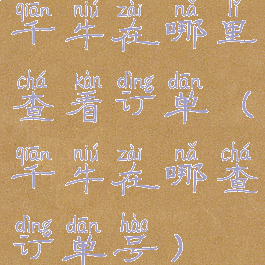 qiān niú zài nǎ lǐ
千牛在哪里
chá kàn dìng dān
查看订单（
qiān niú zài nǎ chá
千牛在哪查
dìng dān hào
订单号）